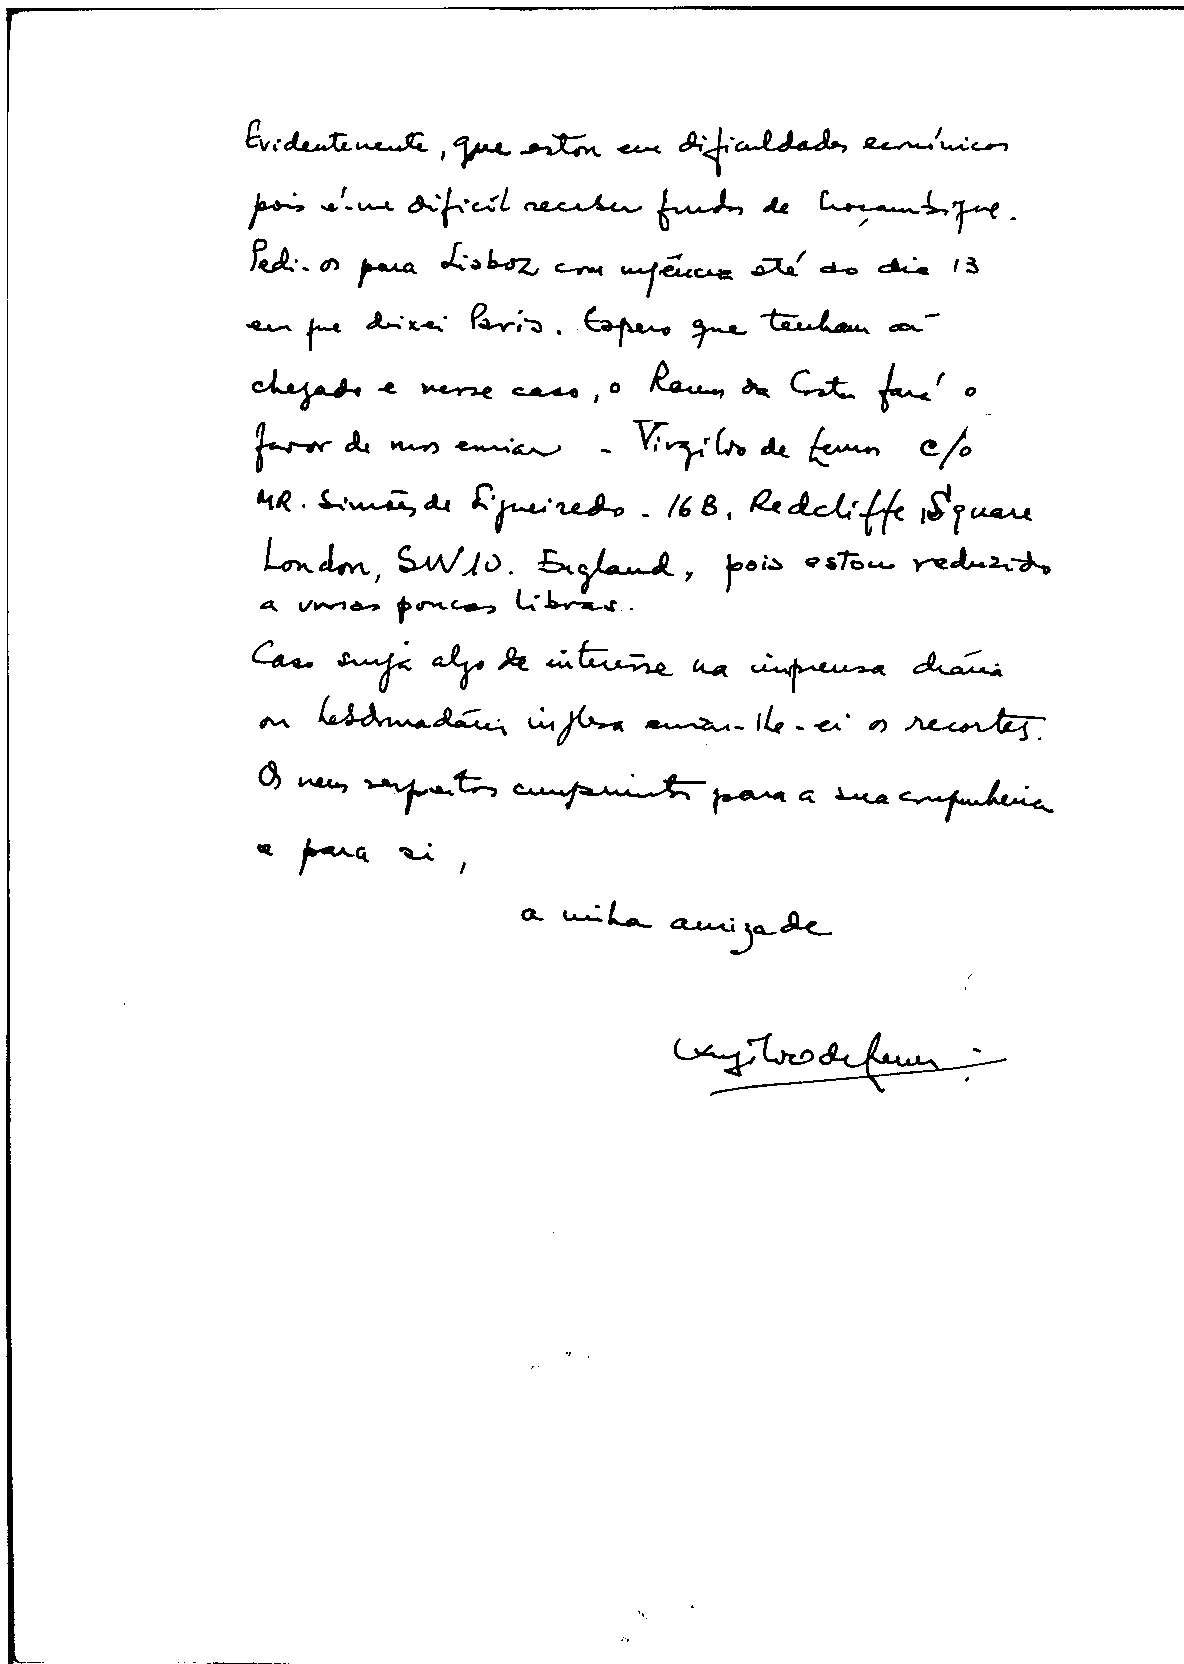 Evidentemente, que estou em dificuldades económicas
pois é-me dificil receber fundos de Moçambique.
Pedi-os para Lisboa com urgência até ao dia 13
em que deixei Paris. Espero que tenham
chegado e nesse caso, o Ramos da Costa fará o
favor de nos enviar - Virgilio de Lemos c/o
MR. Simões de Figueiredo - 16 B, Redcliffe, Square
London, SW10. England, pois estou reduzido
a umas poucas libras.
Caso surja algo de interêsse na imprensa diária
ou hebdomadária inglesa enviar-lhe-ei os recortes.
Os meus respeitos cumprimentos para a sua companheira
e para si,
a minha amizade
Virgilio de Lemos